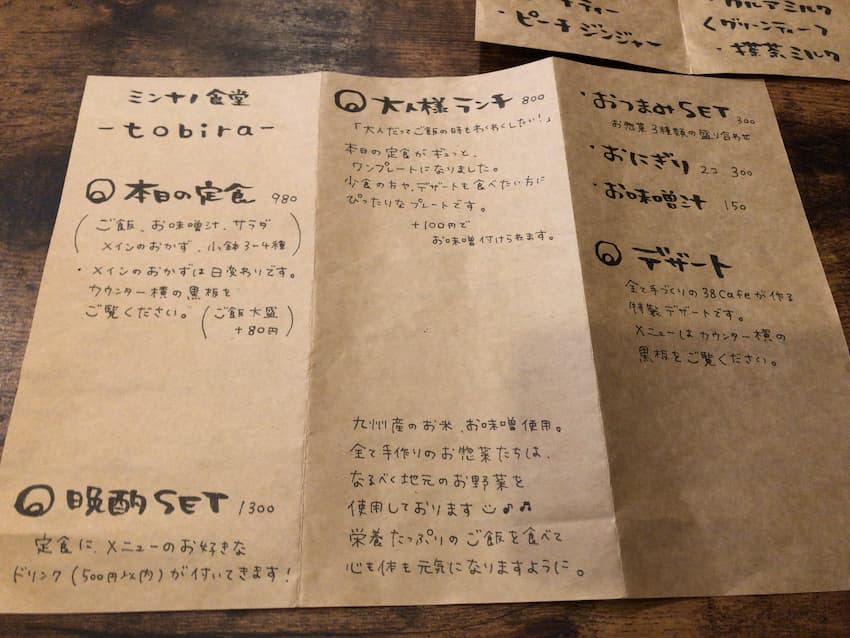 ミンナノ食堂
-tobira-
本日の定食 980
(ご飯、お味噌汁、サラダ
メインのおかず、小鉢3~4種)
・メインのおかずは日変わりです。
カウンター横の黒板を
ご覧ください。
(ご飯大盛
+80円)
晩酌SET 1300
定食に、メニューのお好きな
ドリンク(500円以内)が付いてきます!
大人様ランチ 800
「大人だってご飯の時もわくわくしたい!」
本日の定食がギュっと、
ワンプレートになりました。
少食の方や、デザートも食べたい方に
ぴったりなプレートです。
+100円で
お味噌付けられます。
九州産のお米、お味噌使用。
全て手作りのお惣菜たちは、
なるべく地元のお野菜を
使用しております
栄養たっぷりのご飯を食べて
心も体も元気になりますように。
・おつまみSET 300
お惣菜3種類の盛り合わせ
・おにぎり 2コ 300
・お味噌汁 150
デザート
全て手づくりの38Cafeが作る
特製デザートです。
メニューはカウンター横の
黒板をご覧ください。
・ピーチジンジャー
ミルク
・抹茶ミルク